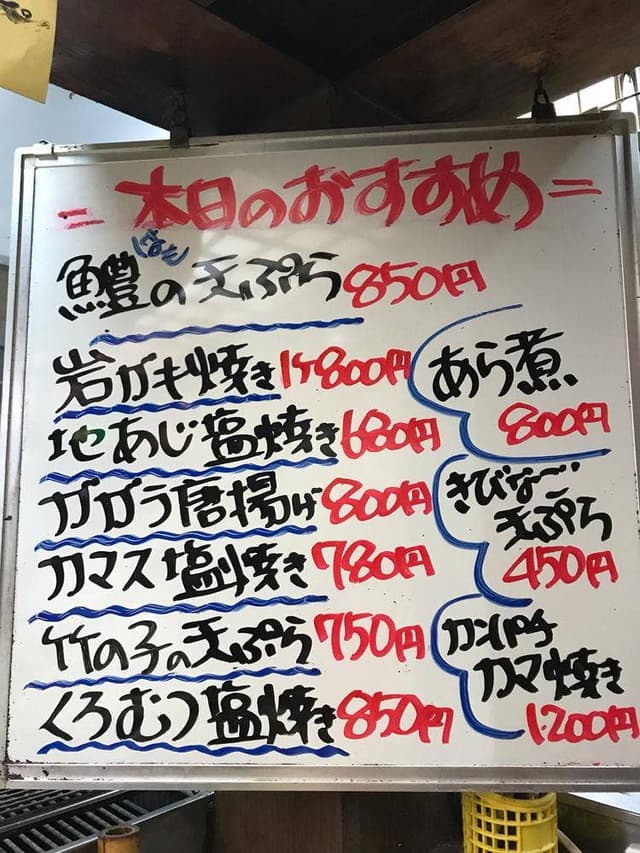 =本日のおすすめ=
はも
鱧の天ぷら 850円
岩ガキ焼き 1ケ800円
地あじ塩焼き 680円
ガガラ唐揚げ 800円
カマス塩焼き 780円
竹の子の天ぷら 750円
くろむつ塩焼き 850円
あら煮
800円
きびなご
天ぷら
450円
カンパチ
カマ焼き
1.200円